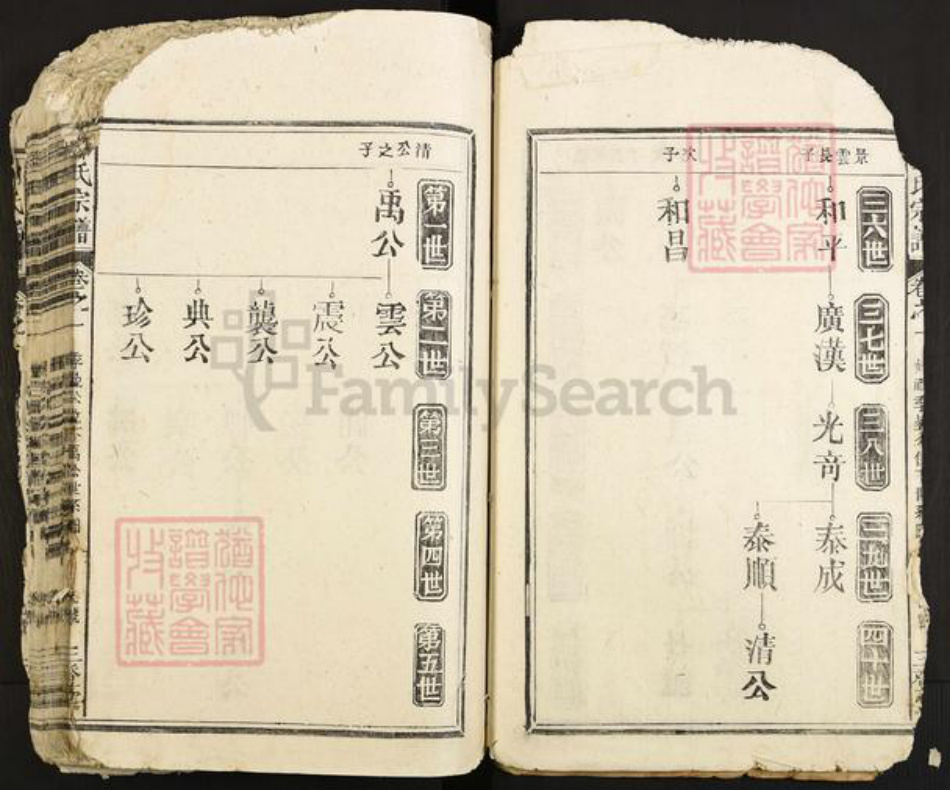 景雲長子
次子
三六世
和平
和昌
三七世
廣漢
三八世
光奇
三九世
泰成
泰順
四十世
清公
清公之子
第一世
禹公
第二世
雲公
震公
襲公
典公
珍公
第三世
第四世
第五世
氏宗譜
卷之一
FamilySearch
譜學會
收藏